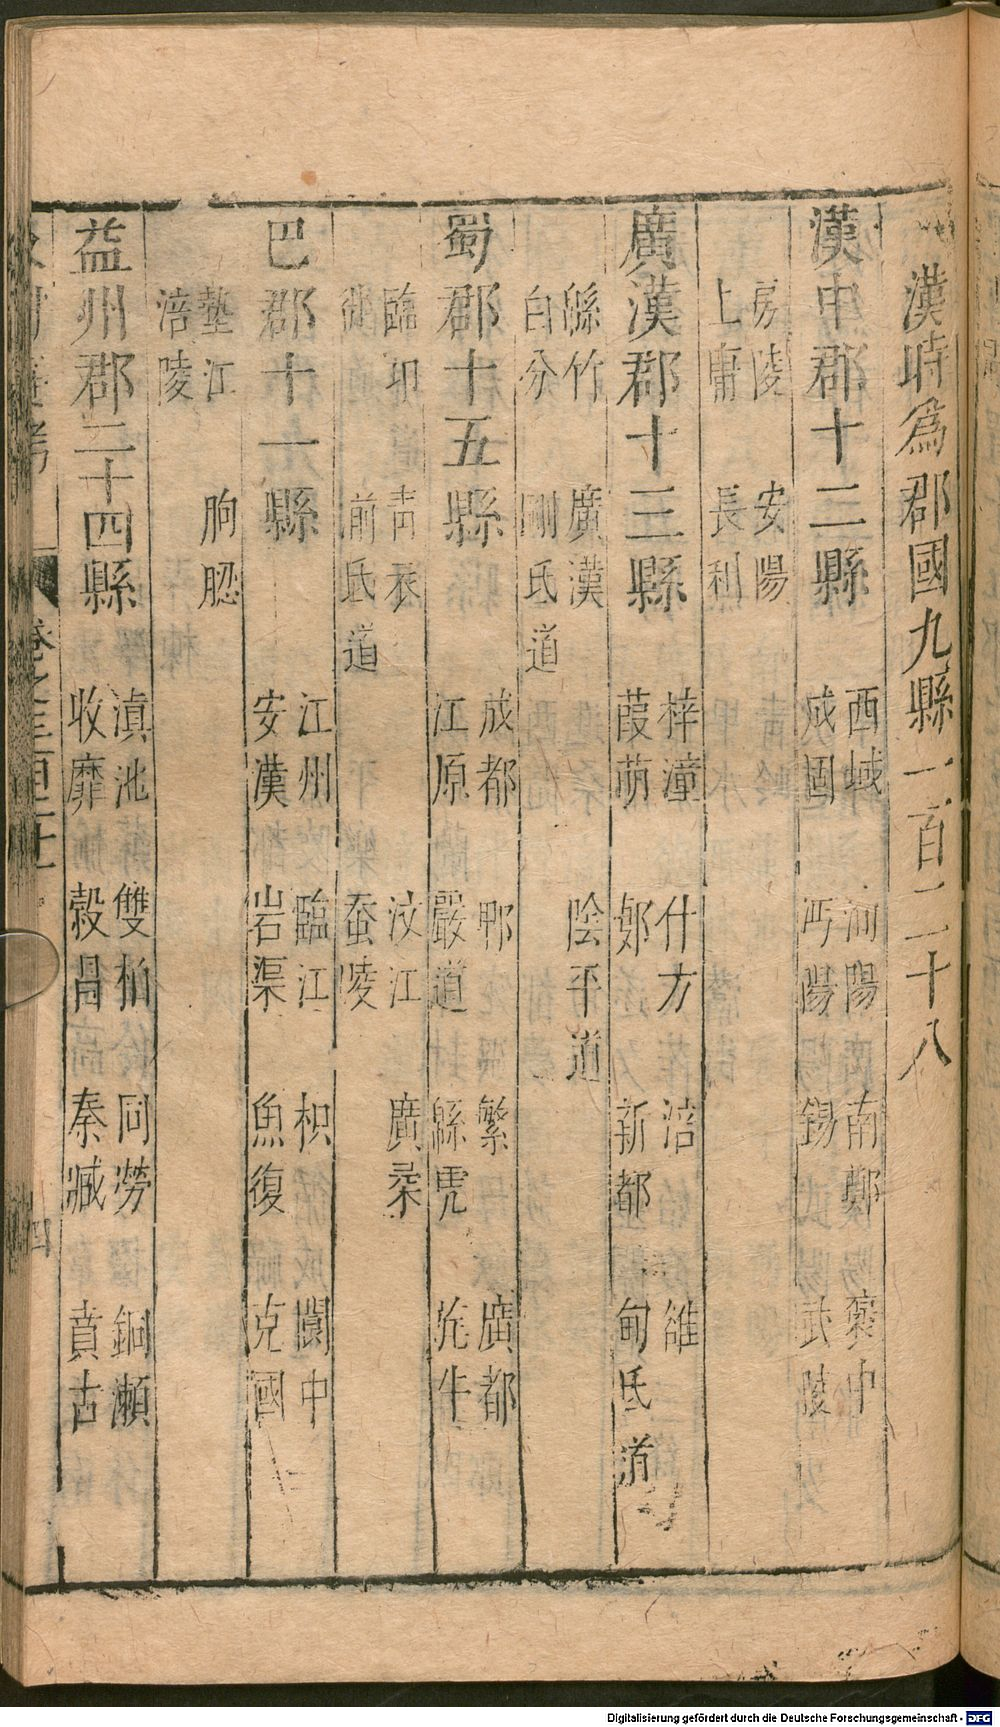 漢時為郡國九縣一百二十八
漢中郡十二縣
西域 洵陽 南鄭 褒中
成固 沔陽 錫 武陵
房陵 安陽
上庸 長利
廣漢郡十三縣
梓潼 什方 涪 雒
葭萌 郪 新都 甸氐道
緜竹 廣漢 陰平道
白水 剛氐道
蜀郡十五縣
成都 郫 繁 廣都
江原 嚴道 緜虒 旄牛
臨邛 靑衣 汶江 廣柔
徙 湔氐道 蚕陵
巴郡十一縣
江州 臨江 枳 閬中
安漢 宕渠 魚復 充國
墊江 朐䏰
涪陵
益州郡二十四縣
滇池 雙柏 同勞 銅瀨
收靡 穀昌 秦臧 賁古
文獻通考 卷之三百二十一 四
Digitalisierung gefördert durch die Deutsche Forschungsgemeinschaft - DFG